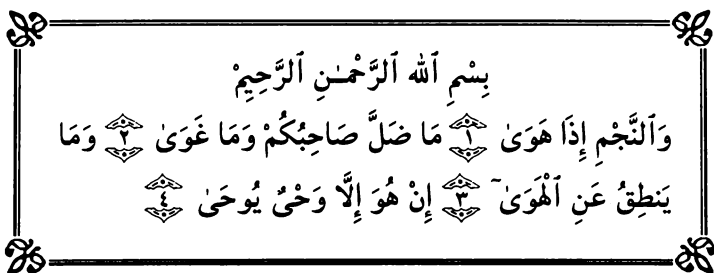 بِسْمِ ٱللَّهِ ٱلرَّحْمَـٰنِ ٱلرَّحِيمِْ
وَٱلنَّجْمِ إِذَا هَوَىٰ ١ مَا ضَلَّ صَاحِبُكُمْ وَمَا غَوَىٰ ٢ وَمَا
يَنطِقُ عَنِ ٱلْهَوَىٰٓ ٣ إِنْ هُوَ إِلَّا وَحْىٌ يُوحَىٰ ٤